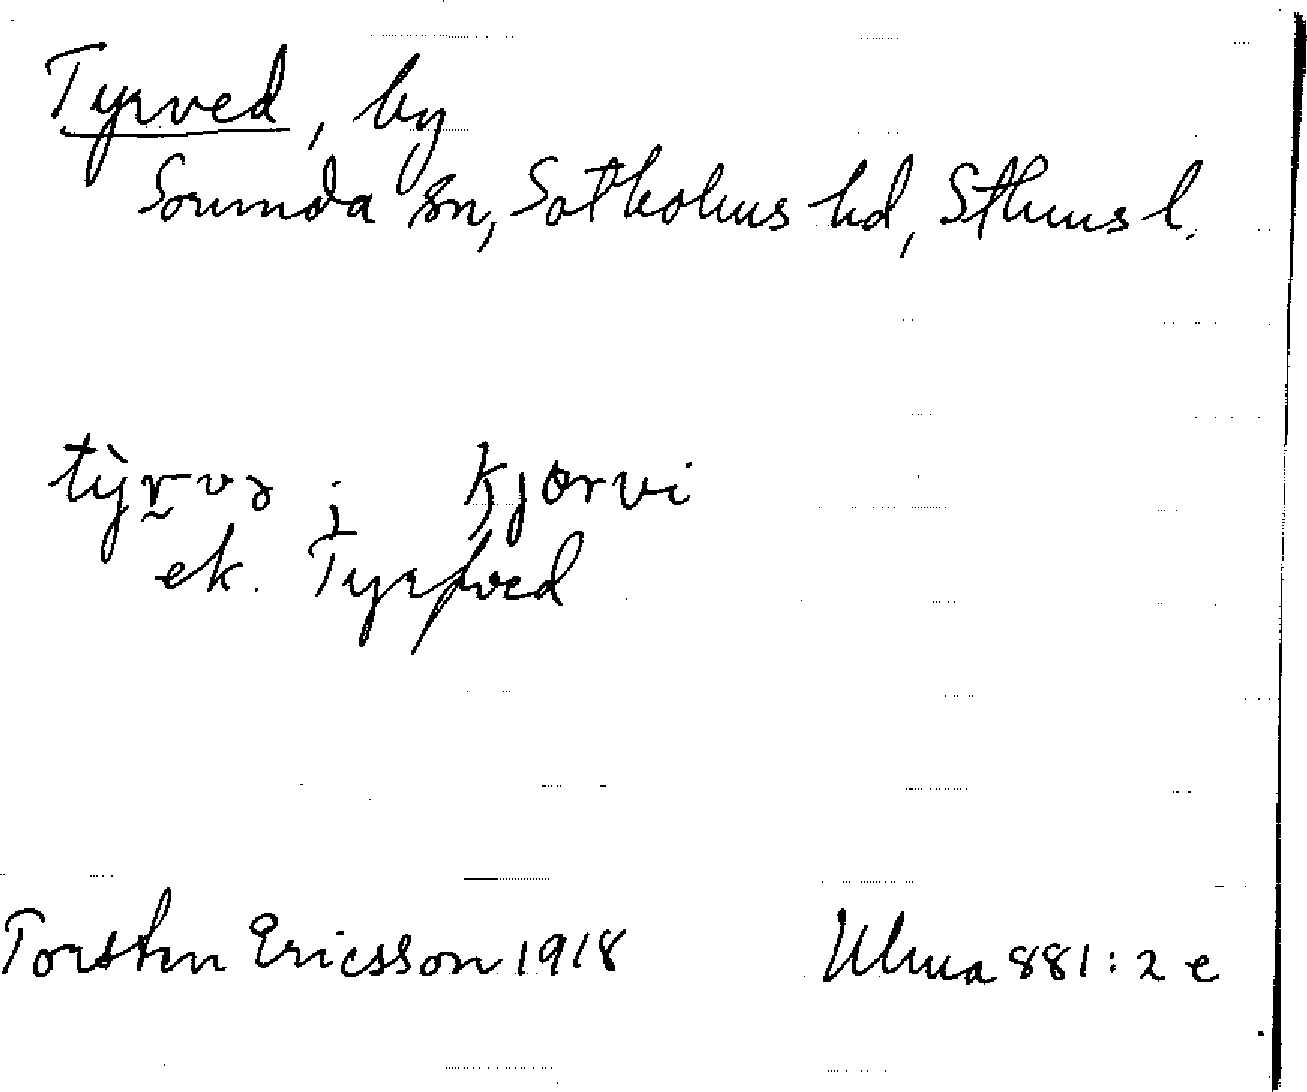 Tyrved, by
Sorunda sn, Sotholms hd, Sthms l.
tỳrvə i
ek. Tyrfved
Torsten Ericsson 1918 Ulma 881:2 e